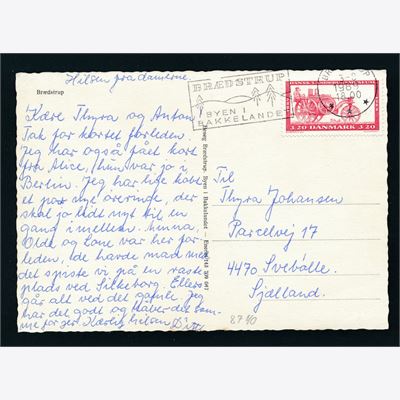 Hilsen fra damerne.
Brædstrup
Kære Thyra og Anton!
Tak for kortet forleden.
Jeg har også fået kort
fra Alice, hun var jo i
Berlin. Jeg har lige købt
et par nye, der
skal jo lidt nyt til en
gang imellem. hinna,
Olde og Lone var her for-
leden, de havde mad med
det spiste vi på en raste
plads ved Silkeborg. Ellers
går alt ved det gamle. Jeg
har det godt og håber det sam-
me for jer. Kærlig hilsen
Brædstrup. Byen i Bakkelandet
BRÆDSTRUP
BYEN I
BAKKELANDET
18.00
3.20 DANMARK 3.20
Til
Thyra Johansen
Parcelvej 17
4470 Svebølle.
Sjælland.
8740